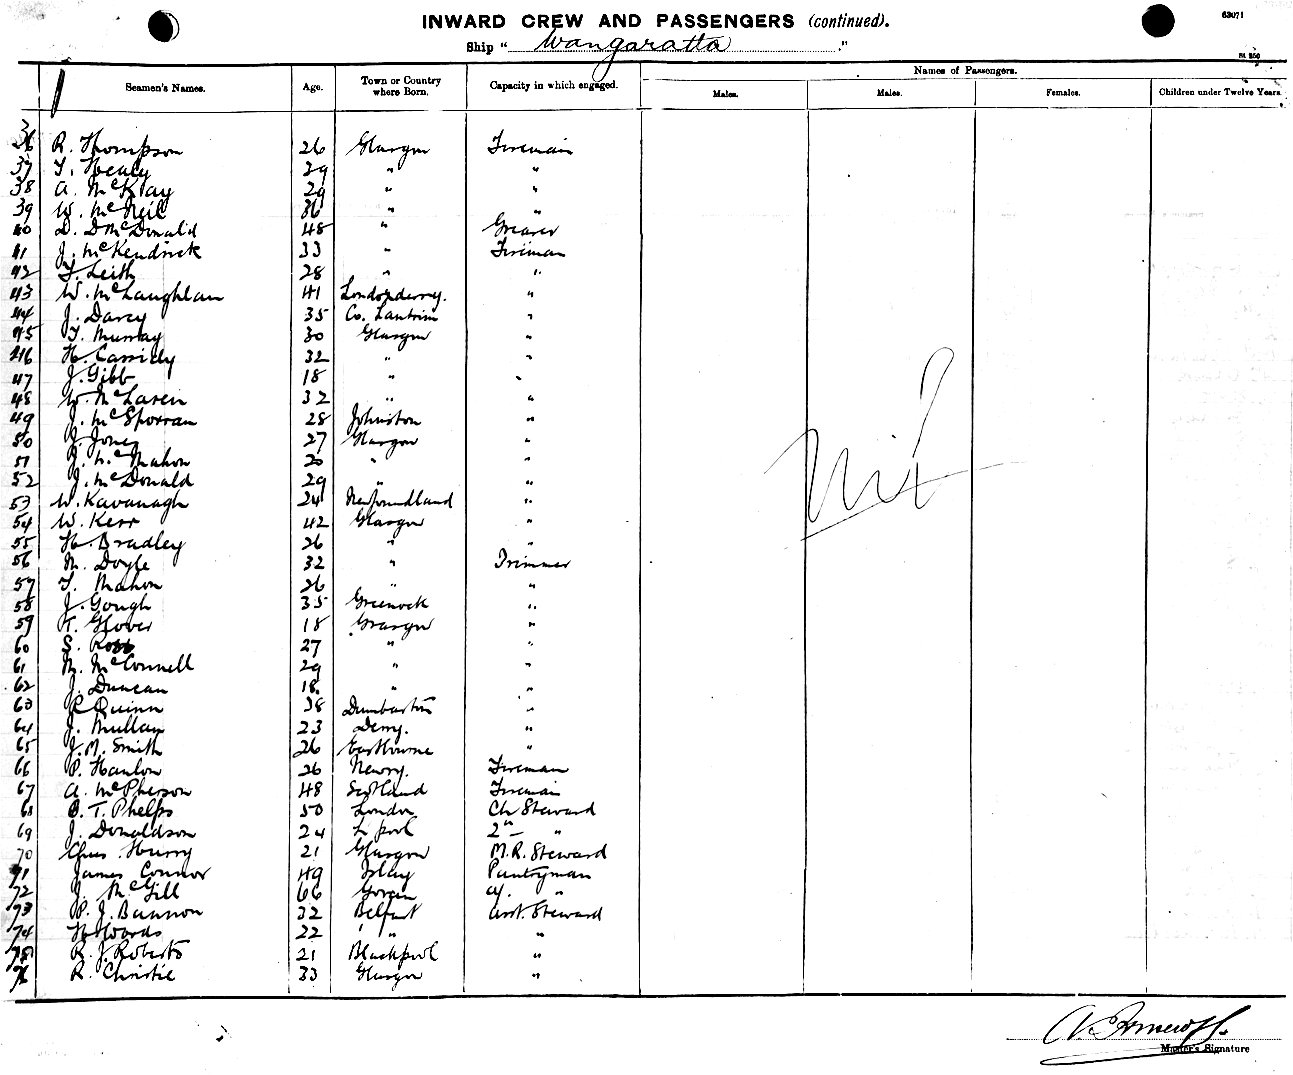 INWARD CREW AND PASSENGERS (continued).
63071
Ship " Wangaratta ."
Seamen's Names. Age. Town or Country where Born. Capacity in which engaged. Names of Passengers.
Males. Males. Females. Children under Twelve Years.
36 R. Thompson 26 Glasgow Fireman
37 T. Healy 29 " "
38 A. McKay 29 " "
39 W. McNeil 36 " "
40 D. McDonald 48 " Greaser
41 J. McKendrick 33 " Fireman
42 T. Leith 28 " "
43 W. McLaughlan 41 Londonderry. "
44 J. Darcy 35 Co. Lantrim "
45 T. Murray 30 Glasgow "
46 H. Cassidy 32 " "
47 J. Gibb 18 " "
48 W. McLaren 32 " "
49 J. McSporran 28 Johnston "
50 J. Jones 27 Glasgow "
51 J. McMahon 20 " "
52 J. McDonald 29 " "
53 W. Kavanagh 24 Newfoundland "
54 W. Kerr 42 Glasgow "
55 H. Bradley 26 " "
56 M. Doyle 32 " Trimmer
57 T. Mahon 26 " "
58 J. Gough 35 Greenock "
59 T. Glover 18 Glasgow "
60 S. Ross 27 " "
61 M. McConnell 29 " "
62 J. Duncan 18 " "
63 P. Quinn 38 Dumbarton "
64 J. Mullan 23 Derry. "
65 J. M. Smith 26 Eastbourne "
66 P. Hanlon 26 Newry. Fireman
67 A. McPherson 48 Scotland Fireman
68 B. T. Phelps 50 London Ch Steward
69 J. Donaldson 24 L'pool 2nd "
70 Chas. Hurry 21 Glasgow M.R. Steward
71 James Connor 49 Islay Pantryman
72 J. McGill 66 Govan a/. "
73 P. J. Bannon 32 Belfast Asst. Steward
74 H. Woods 22 " "
75 R. J. Roberts 21 Blackpool "
76 R. Christie 33 Glasgow "
Nil
Master's Signature